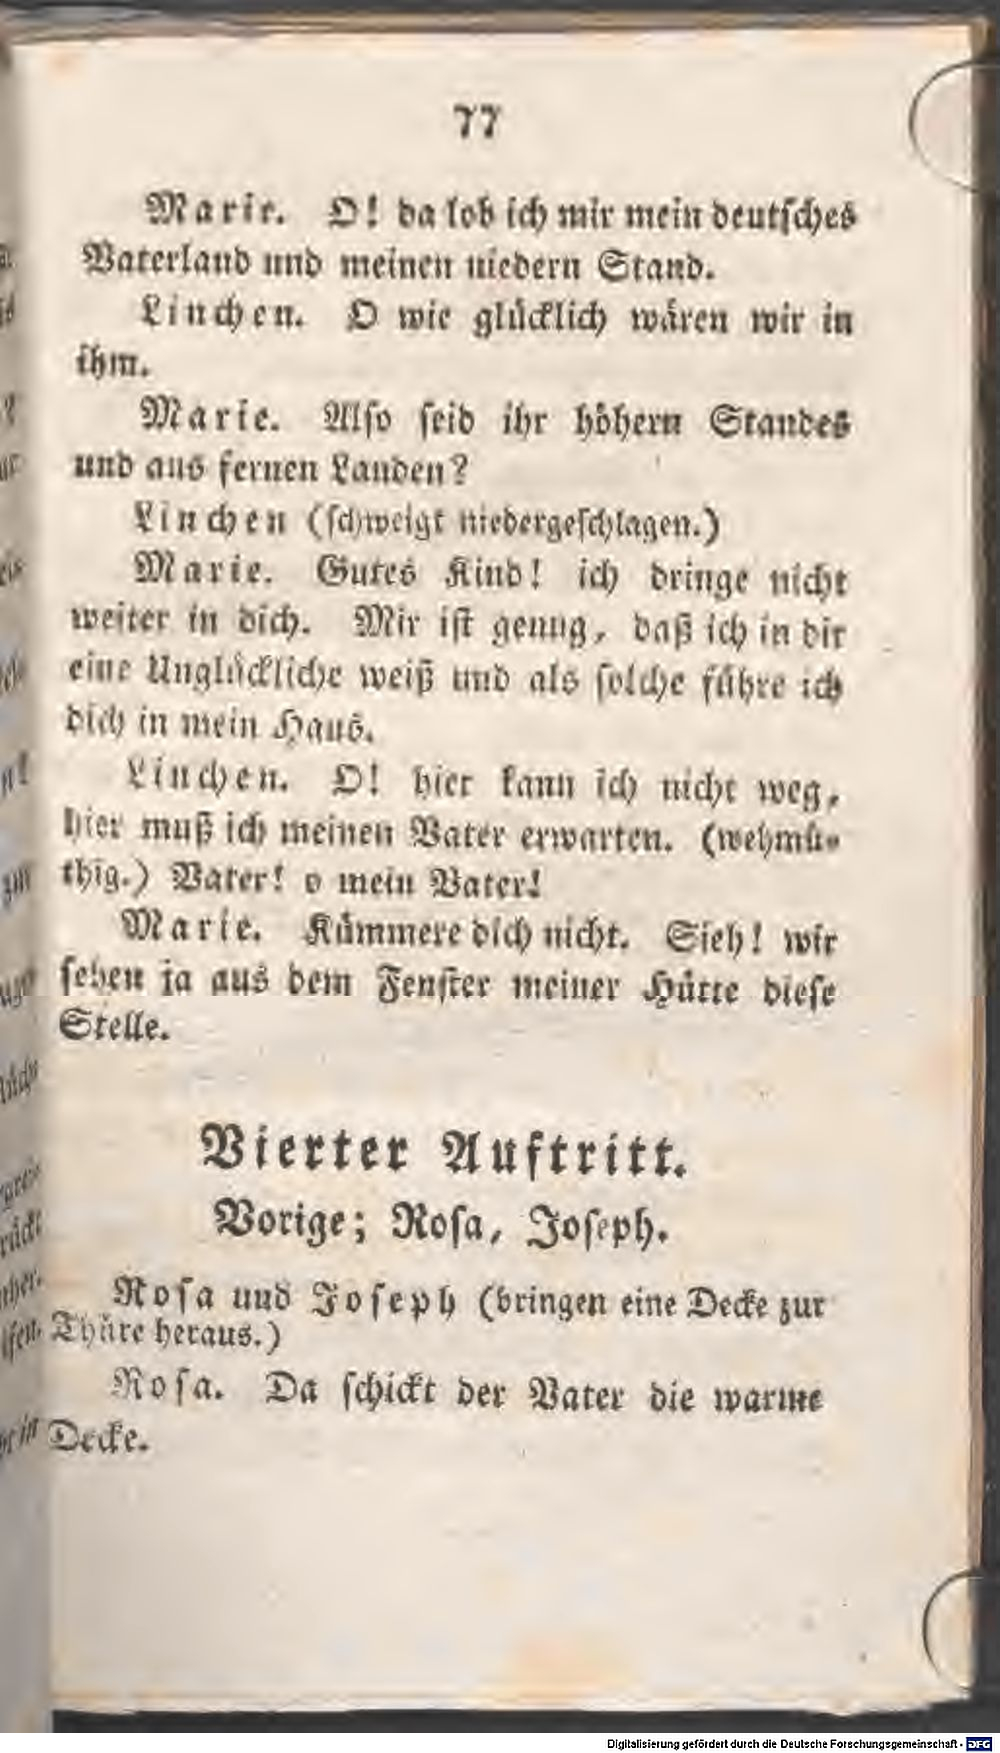 77
Marie. O! da lob ich mir mein deutsches
Vaterland und meinen niedern Stand.
Linchen. O wie glücklich wären wir in
ihm.
Marie. Also seid ihr höhern Standes
und aus fernen Landen?
Linchen (schweigt niedergeschlagen.)
Marie. Gutes Kind! ich dringe nicht
weiter in dich. Mir ist genug, daß ich in dir
eine Unglückliche weiß und als solche führe ich
dich in mein Haus.
Linchen. O! hier kann ich nicht weg,
hier muß ich meinen Vater erwarten. (wehmü-
thig.) Vater! o mein Vater!
Marie. Kümmere dich nicht. Sieh! wir
sehen ja aus dem Fenster meiner Hütte diese
Stelle.
Vierter Auftritt.
Vorige; Rosa, Joseph.
Rosa und Joseph (bringen eine Decke zur
Thüre heraus.)
Rosa. Da schickt der Vater die warme
Decke.
Digitalisierung gefördert durch die Deutsche Forschungsgemeinschaft - DFG